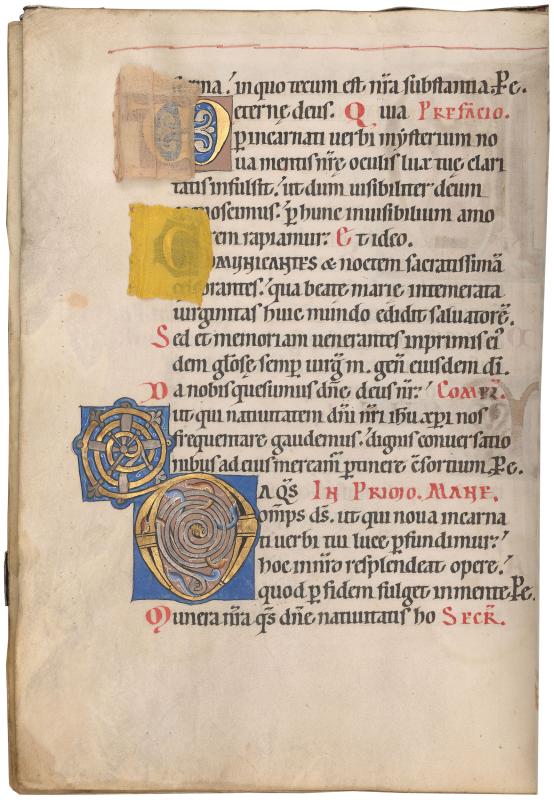 forma. in quo tecum est nr̄a substantia. Pe.
eterne deus. Quia PREFACIO.
p incarnati verbi mysterium no
ua mentis nr̄e oculis lux tue clari
tatis infulsit. ut dum uisibiliter deum
cognoscimus. p hunc inuisibilium amo
rem rapiamur. Et ideo.
COMUNICANTES & noctem sacratissimā
celebrantes. qua beate marie intemerata
uirginitas huic mundo edidit saluatorē.
Sed et memoriam uenerantes inprimis eiꝰ
dem glōse semp uirḡ m. gen̄ eiusdem dī.
Da nobis quesumus dn̄e deus nr̄. COMPƚ.
ut qui natiuitatem dn̄i nr̄i ihu xp̄i nos
frequentare gaudemus. dignis conuersatio
nibus ad eius meream̄ ptinere cōsortium. Pe.
DA Q̄S IN PRIMO. MANE.
omps ds̄. ut qui noua incarna
ti verbi tui luce pfundimur.
hoc in nr̄o resplendeat opere.
quod p fidem fulget in mente. Pe.
Munera nr̄a q̄s dn̄e natiuitatis ho SECR̄.